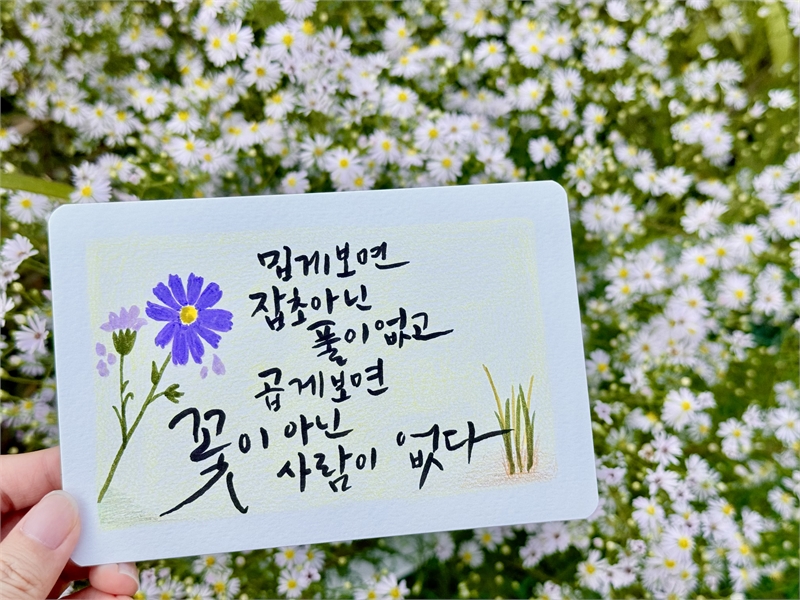 밉게보면
잡초아닌
풀이없고
곱게보면
꽃이 아닌
사람이 없다